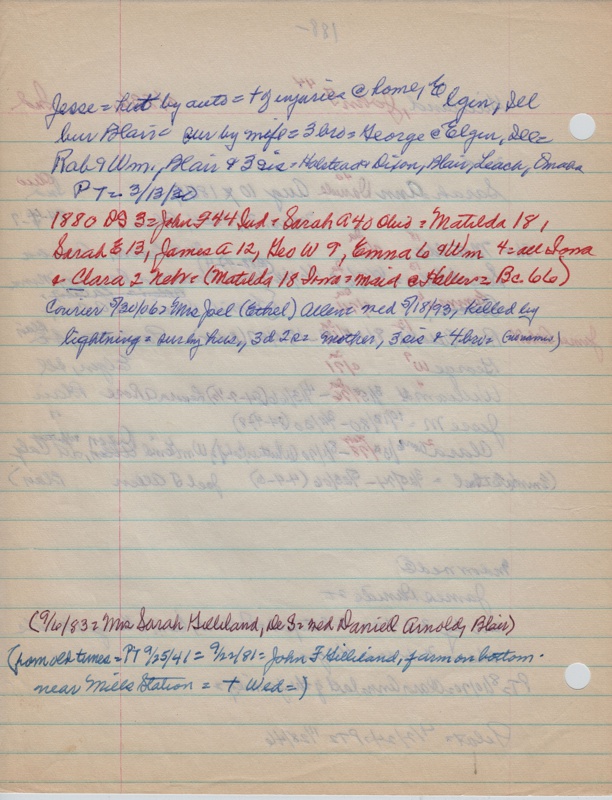 Jesse = hit by auto = + of injuries @ home, Elgin, Ill
bur Blair = sur by wife = 3 bro = George @ Elgin, Ill =
Rob & Wm., Blair & 3 sis = Holstead & Dixon, Blair, Leach, Omaha
PT = 3/13/30
1880 DS 3 = John F 44 Ind = Sarah A 40 Ohio = Matilda 18,
Sarah E 13, James A 12, Geo W 9, Emma 6 & Wm 4 = all Iowa
& Clara 2 Nebr = (Matilda 18 Iowa = maid @ Haller = Bc 66)
Courier 5/30/06 = Mrs Joel (Ethel) Allen med 5/18/93, killed by
lightning = sur by hus, 3d 2s = mother, 3 sis & 4 bro = (no names)
(9/6/83 = Mrs Sarah Gilliland, De S = med Daniel Arnold, Blair)
(from old times = PT 9/25/41 = 9/22/81 = John F Gilliland, farm on bottom
near Mills Station = + Wed =)